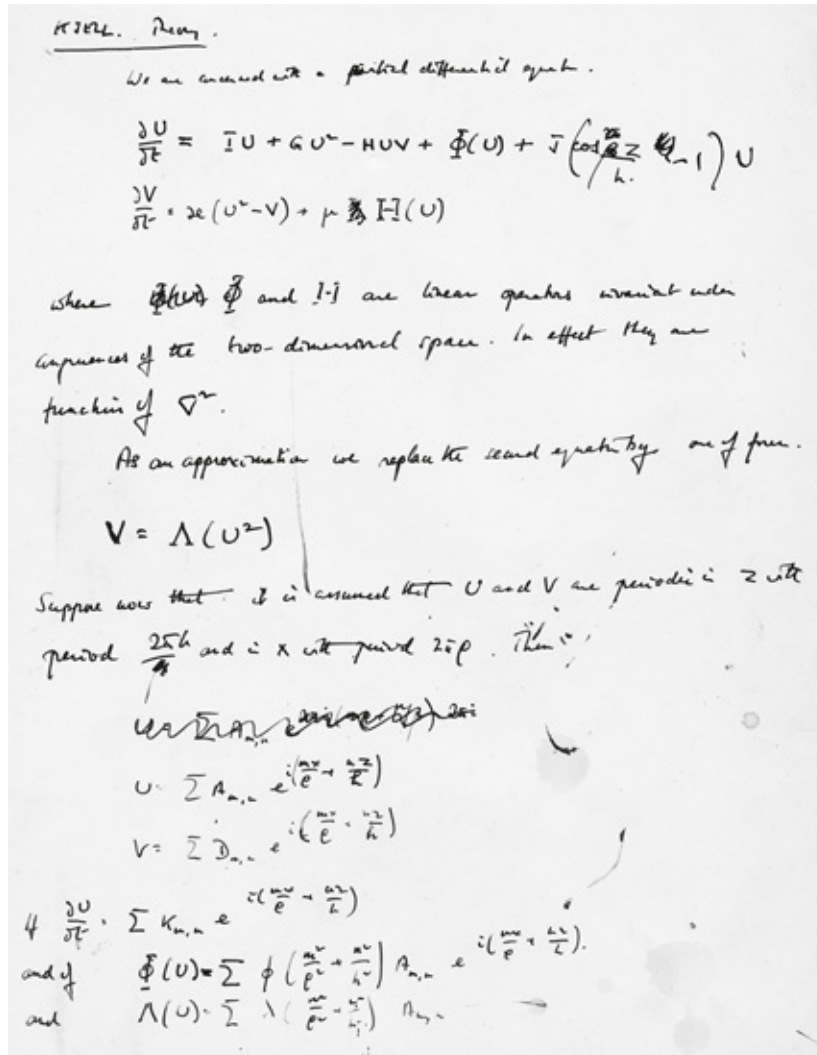 KJELL. Theory.
We are concerned with a partial differential equation.
∂U/∂t = IU + GU² − HUV + Φ(U) + J(cos z/h − 1) U
∂V/∂t = ϰ(U² − V) + μ H(U)
where Φ and H are linear operators invariant under
congruences of the two-dimensional space. In effect they are
function of ∇².
As an approximation we replace the second equation by one of form.
V = Λ(U²)
Suppose now that it is assumed that U and V are periodic in z with
period 2πh and in x with period 2πρ. Then
U = ∑ A_{m,n} e^{i(mx/ρ + nz/h)}
V = ∑ D_{m,n} e^{i(mx/ρ + nz/h)}
If ∂U/∂t = ∑ K_{m,n} e^{i(mx/ρ + nz/h)}
and if Φ(U) = ∑ φ(m²/ρ² + n²/h²) A_{m,n} e^{i(mx/ρ + nz/h)}.
and Λ(U) = ∑ λ(m²/ρ² + n²/h²) A_{m,n}